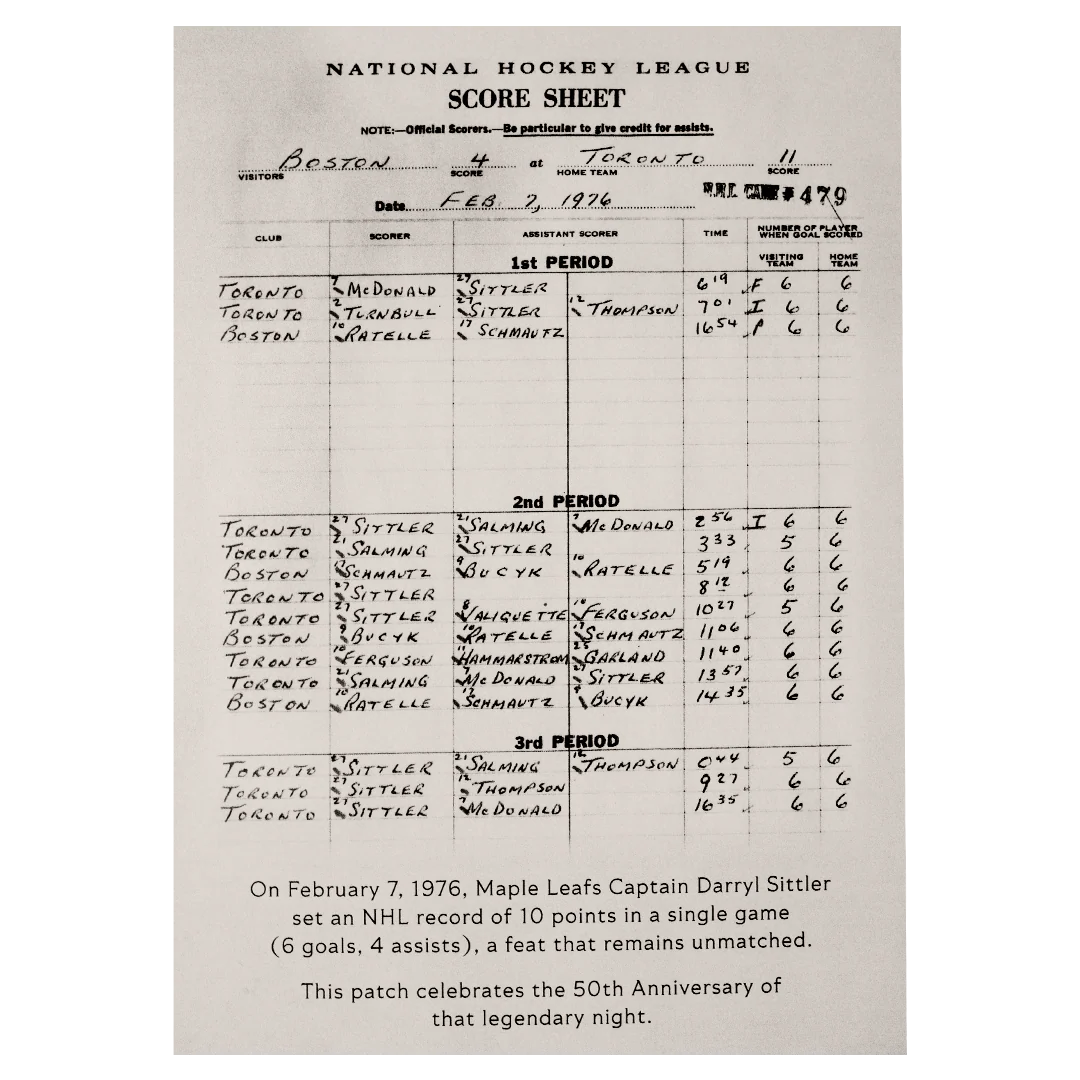 NATIONAL HOCKEY LEAGUE
SCORE SHEET
NOTE:—Official Scorers.—Be particular to give credit for assists.
BOSTON 4 at TORONTO 11
VISITORS SCORE HOME TEAM SCORE
Date FEB 7, 1976 N.H.L. GAME # 479
CLUB SCORER ASSISTANT SCORER TIME NUMBER OF PLAYER WHEN GOAL SCORED
VISITING TEAM HOME TEAM
1st PERIOD
TORONTO 7 McDONALD 27 SITTLER 6 19 F 6 6
TORONTO 2 TURNBULL 27 SITTLER 12 THOMPSON 7 01 I 6 6
BOSTON 10 RATELLE 17 SCHMAUTZ 16 54 P 6 6
2nd PERIOD
TORONTO 27 SITTLER 21 SALMING 7 McDONALD 2 56 I 6 6
TORONTO 21 SALMING 27 SITTLER 3 33 5 6
BOSTON SCHMAUTZ 9 BUCYK 10 RATELLE 5 19 6 6
TORONTO 27 SITTLER 8 12 6 6
TORONTO 27 SITTLER 8 VALIQUETTE 10 FERGUSON 10 27 5 6
BOSTON 9 BUCYK 10 RATELLE 17 SCHMAUTZ 11 06 6 6
TORONTO 10 FERGUSON 11 HAMMARSTROM 25 GARLAND 11 40 6 6
TORONTO 21 SALMING 7 McDONALD 27 SITTLER 13 57 6 6
BOSTON 10 RATELLE 17 SCHMAUTZ 9 BUCYK 14 35 6 6
3rd PERIOD
TORONTO 27 SITTLER 21 SALMING 12 THOMPSON 0 44 5 6
TORONTO 27 SITTLER 12 THOMPSON 9 27 6 6
TORONTO 27 SITTLER 7 McDONALD 16 35 6 6
On February 7, 1976, Maple Leafs Captain Darryl Sittler
set an NHL record of 10 points in a single game
(6 goals, 4 assists), a feat that remains unmatched.
This patch celebrates the 50th Anniversary of
that legendary night.